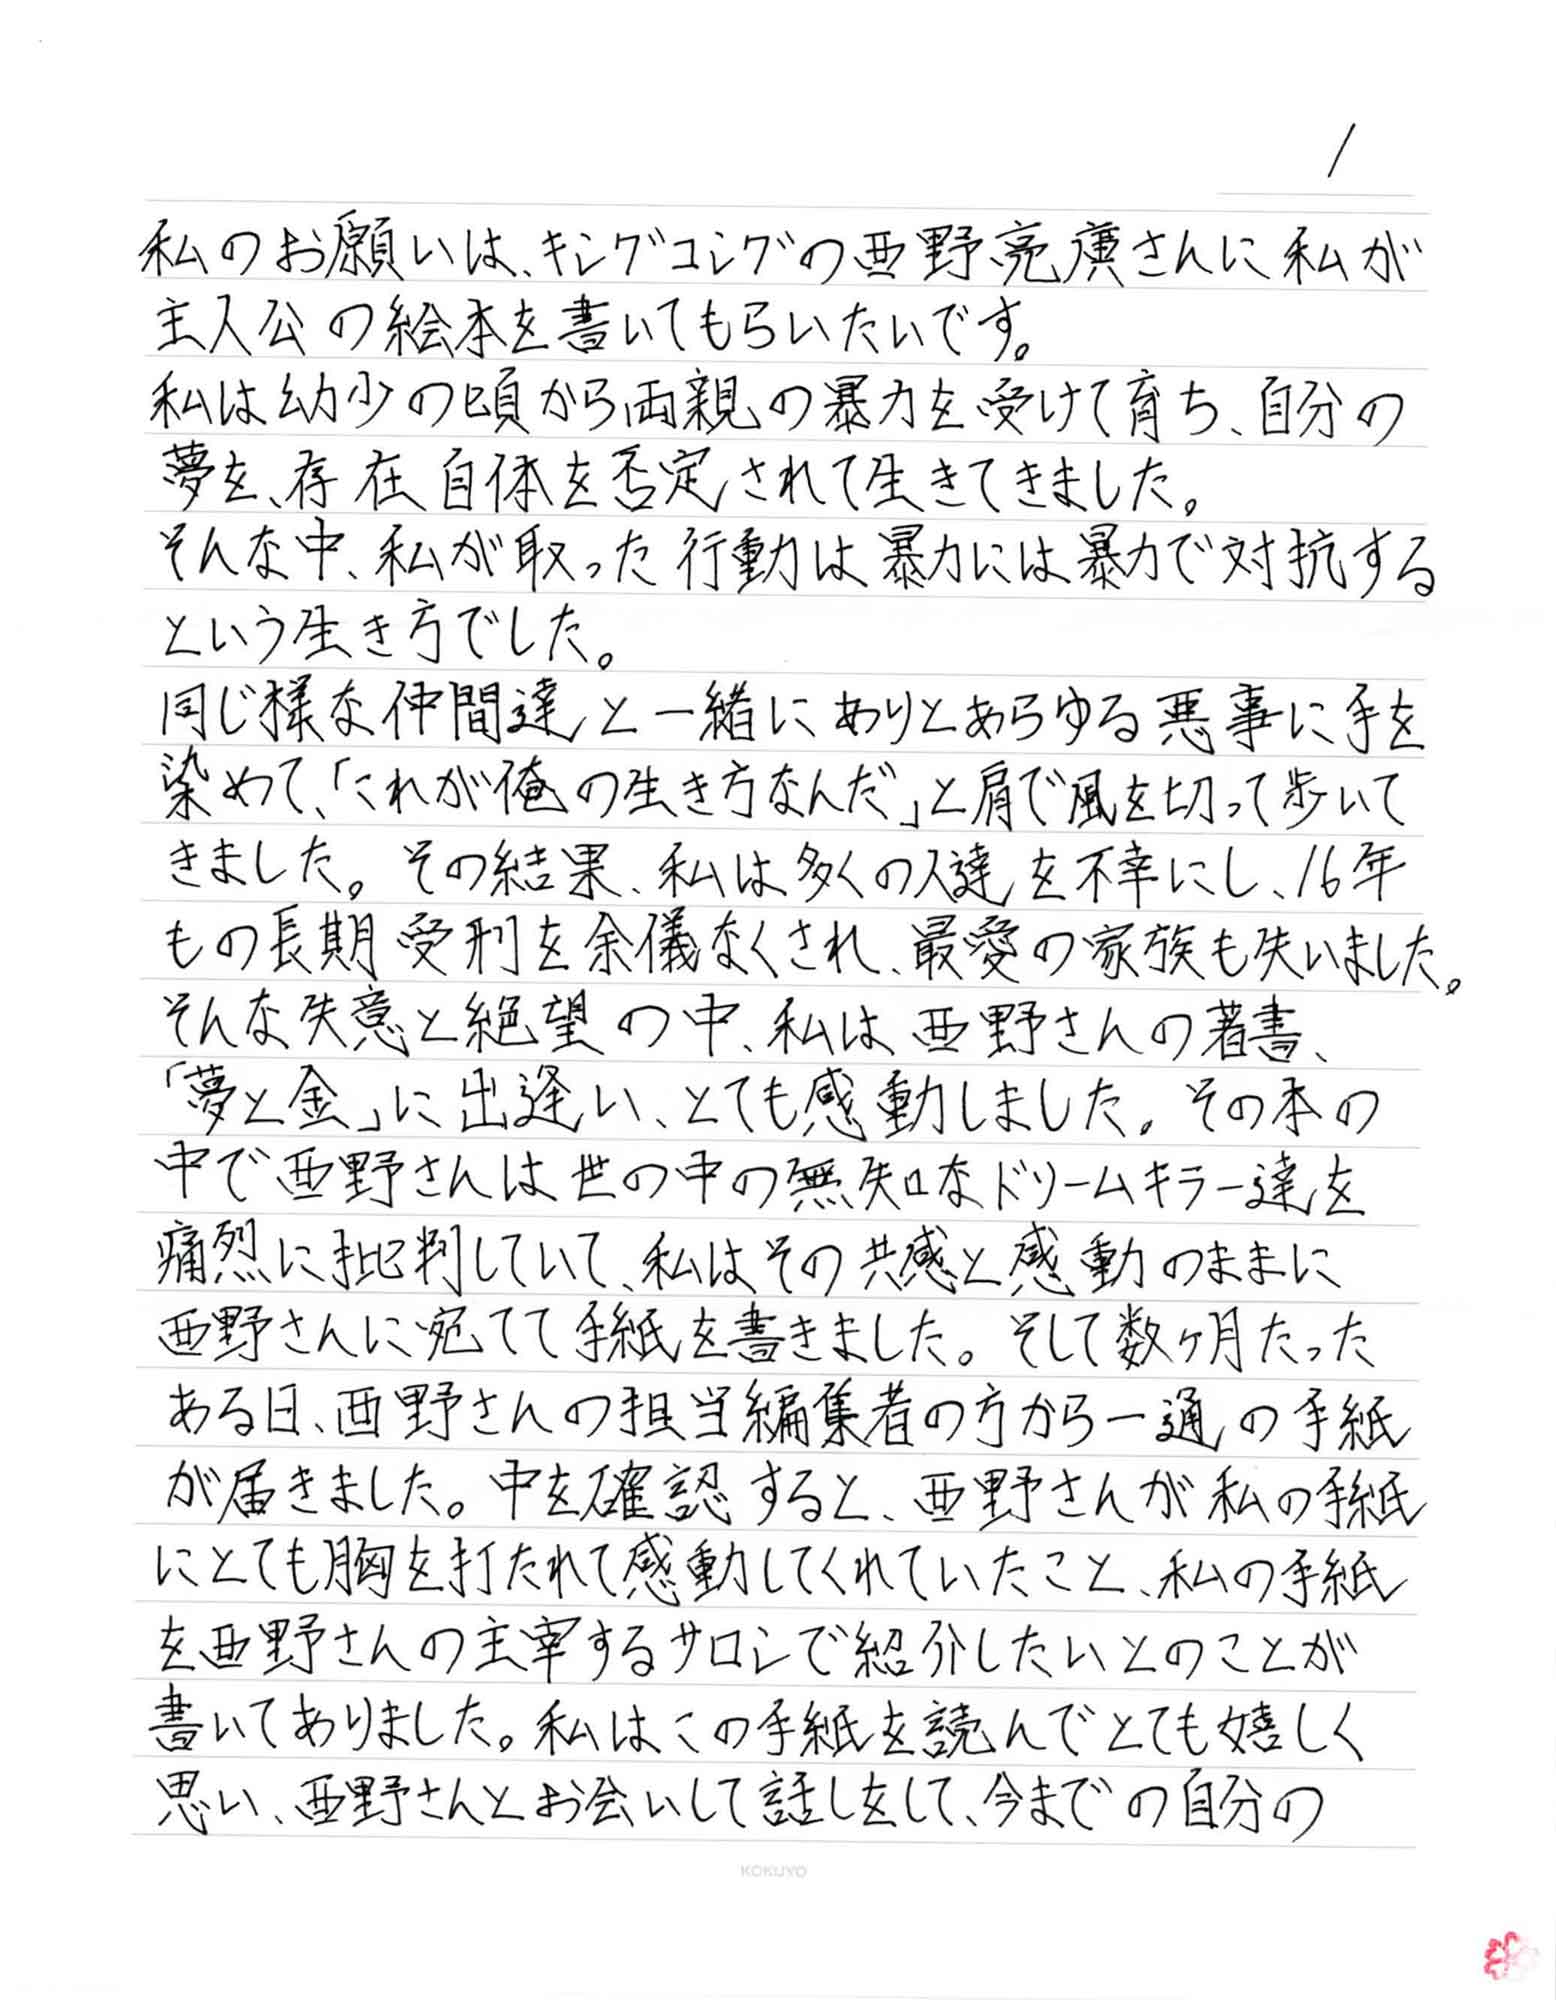 1
私のお願いは、キングコングの西野亮廣さんに私が
主人公の絵本を書いてもらいたいです。
私は幼少の頃から両親の暴力を受けて育ち、自分の
夢を、存在自体を否定されて生きてきました。
そんな中、私が取った行動は暴力には暴力で対抗する
という生き方でした。
同じ様な仲間達と一緒にありとあらゆる悪事に手を
染めて、「これが俺の生き方なんだ」と肩で風を切って歩いて
きました。その結果、私は多くの人達を不幸にし、16年
もの長期受刑を余儀なくされ、最愛の家族も失いました。
そんな失意と絶望の中、私は西野さんの著書、
「夢と金」に出逢い、とても感動しました。その本の
中で西野さんは世の中の無知なドリームキラー達を
痛烈に批判していて、私はその共感と感動のままに
西野さんに宛てて手紙を書きました。そして数ヶ月たった
ある日、西野さんの担当編集者の方から一通の手紙
が届きました。中を確認すると、西野さんが私の手紙
にとても胸を打たれて感動してくれていたこと、私の手紙
を西野さんの主宰するサロンで紹介したいとのことが
書いてありました。私はこの手紙を読んでとても嬉しく
思い、西野さんとお会いして話しをして、今までの自分の
KOKUYO